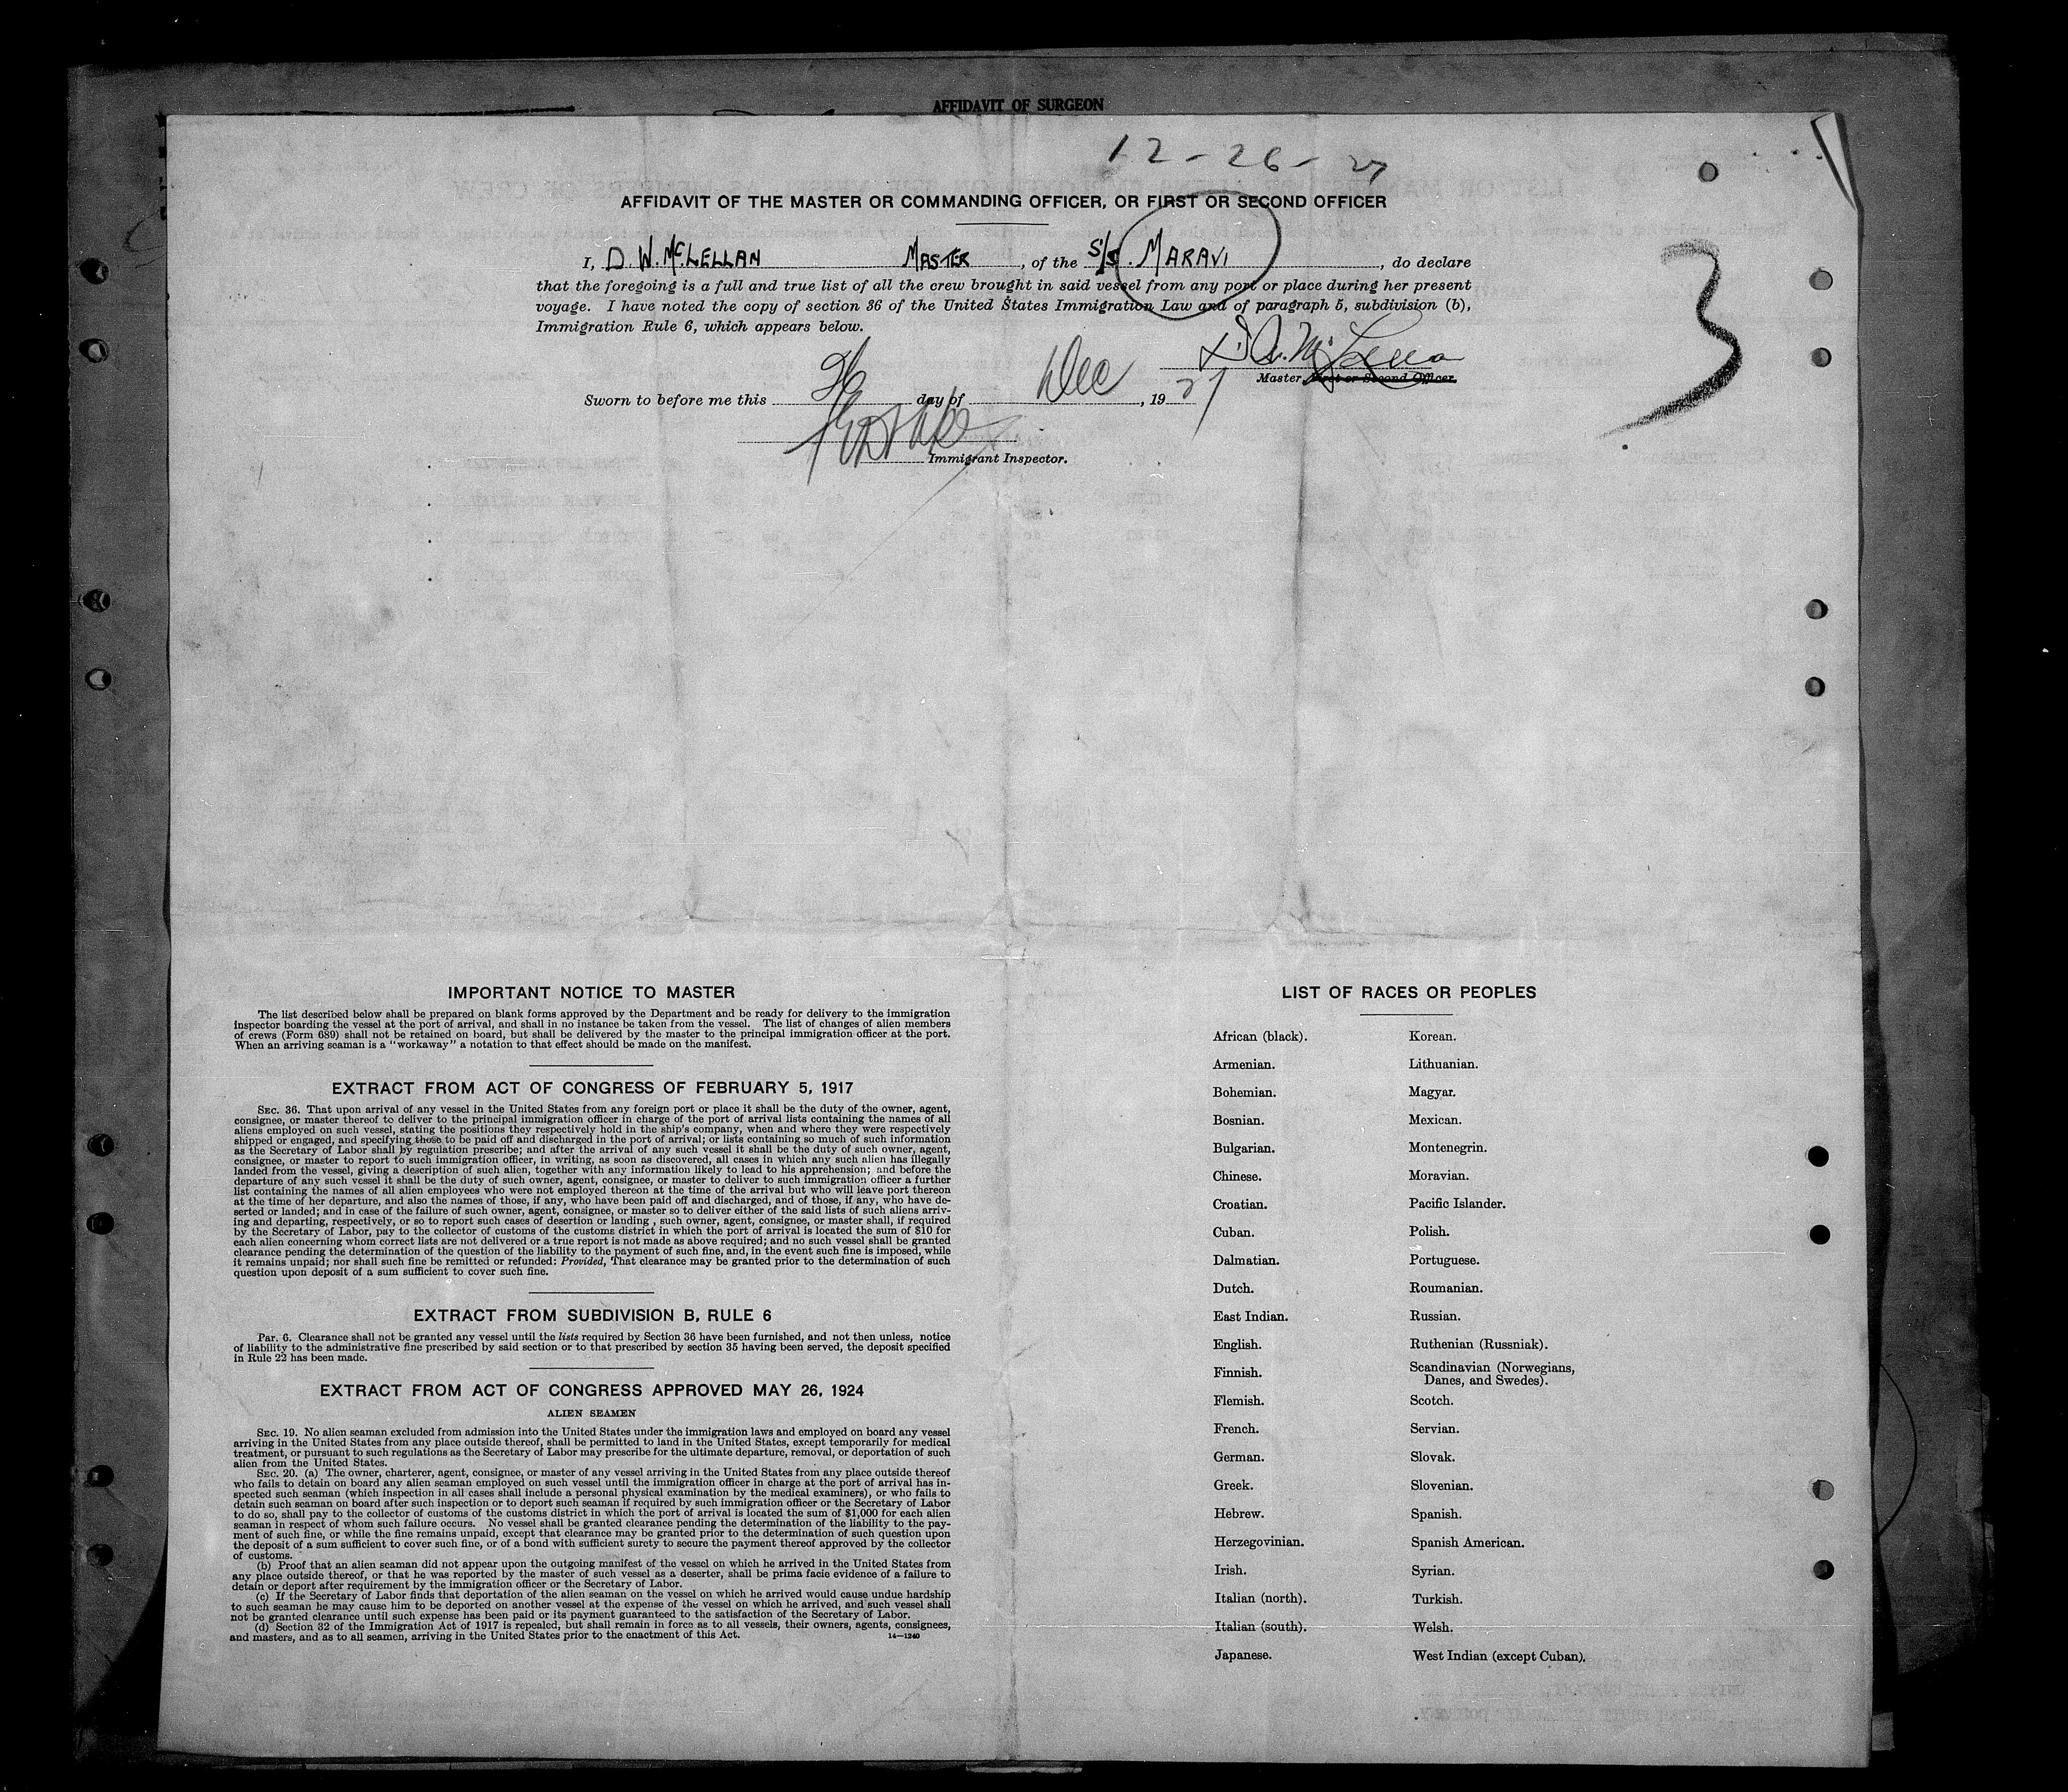 AFFIDAVIT OF SURGEON
12-26-27
AFFIDAVIT OF THE MASTER OR COMMANDING OFFICER, OR FIRST OR SECOND OFFICER
3
I, D. W. McLELLAN MASTER, of the S/S. MARAVI, do declare
that the foregoing is a full and true list of all the crew brought in said vessel from any port or place during her present
voyage. I have noted the copy of section 36 of the United States Immigration Law and of paragraph 5, subdivision (b),
Immigration Rule 6, which appears below.
Master, First or Second Officer.
Sworn to before me this 26 day of Dec, 1927
Immigrant Inspector.
IMPORTANT NOTICE TO MASTER
The list described below shall be prepared on blank forms approved by the Department and be ready for delivery to the immigration
inspector boarding the vessel at the port of arrival, and shall in no instance be taken from the vessel. The list of changes of alien members
of crews (Form 689) shall not be retained on board, but shall be delivered by the master to the principal immigration officer at the port.
When an arriving seaman is a "workaway" a notation to that effect should be made on the manifest.
EXTRACT FROM ACT OF CONGRESS OF FEBRUARY 5, 1917
SEC. 36. That upon arrival of any vessel in the United States from any foreign port or place it shall be the duty of the owner, agent,
consignee, or master thereof to deliver to the principal immigration officer in charge of the port of arrival lists containing the names of all
aliens employed on such vessel, stating the positions they respectively hold in the ship's company, when and where they were respectively
shipped or engaged, and specifying those to be paid off and discharged in the port of arrival; or lists containing so much of such information
as the Secretary of Labor shall by regulation prescribe; and after the arrival of any such vessel it shall be the duty of such owner, agent,
consignee, or master to report to such immigration officer, in writing, as soon as discovered, all cases in which any such alien has illegally
landed from the vessel, giving a description of such alien, together with any information likely to lead to his apprehension; and before the
departure of any such vessel it shall be the duty of such owner, agent, consignee, or master to deliver to such immigration officer a further
list containing the names of all alien employees who were not employed thereon at the time of the arrival but who will leave port thereon
at the time of her departure, and also the names of those, if any, who have been paid off and discharged, and of those, if any, who have de-
serted or landed; and in case of the failure of such owner, agent, consignee, or master so to deliver either of the said lists of such aliens arriv-
ing and departing, respectively, or so to report such cases of desertion or landing , such owner, agent, consignee, or master shall, if required
by the Secretary of Labor, pay to the collector of customs of the customs district in which the port of arrival is located the sum of $10 for
each alien concerning whom correct lists are not delivered or a true report is not made as above required; and no such vessel shall be granted
clearance pending the determination of the question of the liability to the payment of such fine, and, in the event such fine is imposed, while
it remains unpaid; nor shall such fine be remitted or refunded: Provided, That clearance may be granted prior to the determination of such
question upon deposit of a sum sufficient to cover such fine.
EXTRACT FROM SUBDIVISION B, RULE 6
Par. 6. Clearance shall not be granted any vessel until the lists required by Section 36 have been furnished, and not then unless, notice
of liability to the administrative fine prescribed by said section or to that prescribed by section 35 having been served, the deposit specified
in Rule 22 has been made.
EXTRACT FROM ACT OF CONGRESS APPROVED MAY 26, 1924
ALIEN SEAMEN
SEC. 19. No alien seaman excluded from admission into the United States under the immigration laws and employed on board any vessel
arriving in the United States from any place outside thereof, shall be permitted to land in the United States, except temporarily for medical
treatment, or pursuant to such regulations as the Secretary of Labor may prescribe for the ultimate departure, removal, or deportation of such
alien from the United States.
SEC. 20. (a) The owner, charterer, agent, consignee, or master of any vessel arriving in the United States from any place outside thereof
who fails to detain on board any alien seaman employed on such vessel until the immigration officer in charge at the port of arrival has in-
spected such seaman (which inspection in all cases shall include a personal physical examination by the medical examiners), or who fails to
detain such seaman on board after such inspection or to deport such seaman if required by such immigration officer or the Secretary of Labor
to do so, shall pay to the collector of customs of the customs district in which the port of arrival is located the sum of $1,000 for each alien
seaman in respect of whom such failure occurs. No vessel shall be granted clearance pending the determination of the liability to the pay-
ment of such fine, or while the fine remains unpaid, except that clearance may be granted prior to the determination of such question upon
the deposit of a sum sufficient to cover such fine, or of a bond with sufficient surety to secure the payment thereof approved by the collector
of customs.
(b) Proof that an alien seaman did not appear upon the outgoing manifest of the vessel on which he arrived in the United States from
any place outside thereof, or that he was reported by the master of such vessel as a deserter, shall be prima facie evidence of a failure to
detain or deport after requirement by the immigration officer or the Secretary of Labor.
(c) If the Secretary of Labor finds that deportation of the alien seaman on the vessel on which he arrived would cause undue hardship
to such seaman he may cause him to be deported on another vessel at the expense of the vessel on which he arrived, and such vessel shall
not be granted clearance until such expense has been paid or its payment guaranteed to the satisfaction of the Secretary of Labor.
(d) Section 32 of the Immigration Act of 1917 is repealed, but shall remain in force as to all vessels, their owners, agents, consignees,
and masters, and as to all seamen, arriving in the United States prior to the enactment of this Act.
14—1240
LIST OF RACES OR PEOPLES
African (black). Korean.
Armenian. Lithuanian.
Bohemian. Magyar.
Bosnian. Mexican.
Bulgarian. Montenegrin.
Chinese. Moravian.
Croatian. Pacific Islander.
Cuban. Polish.
Dalmatian. Portuguese.
Dutch. Roumanian.
East Indian. Russian.
English. Ruthenian (Russniak).
Finnish. Scandinavian (Norwegians,
Danes, and Swedes).
Flemish. Scotch.
French. Servian.
German. Slovak.
Greek. Slovenian.
Hebrew. Spanish.
Herzegovinian. Spanish American.
Irish. Syrian.
Italian (north). Turkish.
Italian (south). Welsh.
Japanese. West Indian (except Cuban).